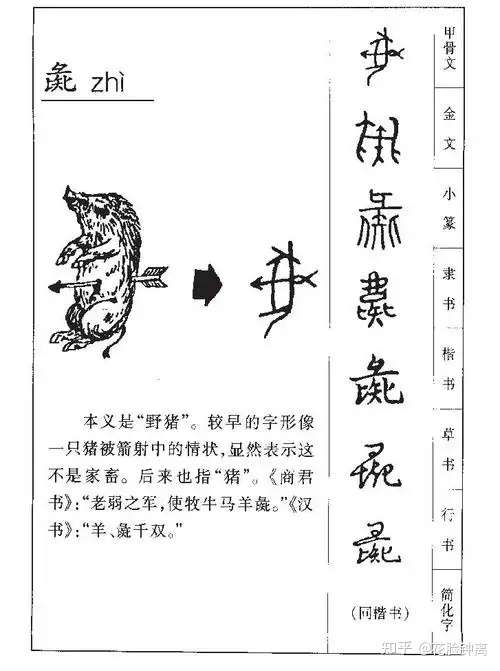 彘 zhì
本义是“野猪”。较早的字形像
一只猪被箭射中的情状,显然表示这
不是家畜。后来也指“猪”。《商君
书》:“老弱之军,使牧牛马羊彘。”《汉
书》:“羊、彘千双。”
甲骨文
金文
小篆
隶书
楷书
彘
草书
行书
简化字
(同楷书)
知乎 @花脸钟离